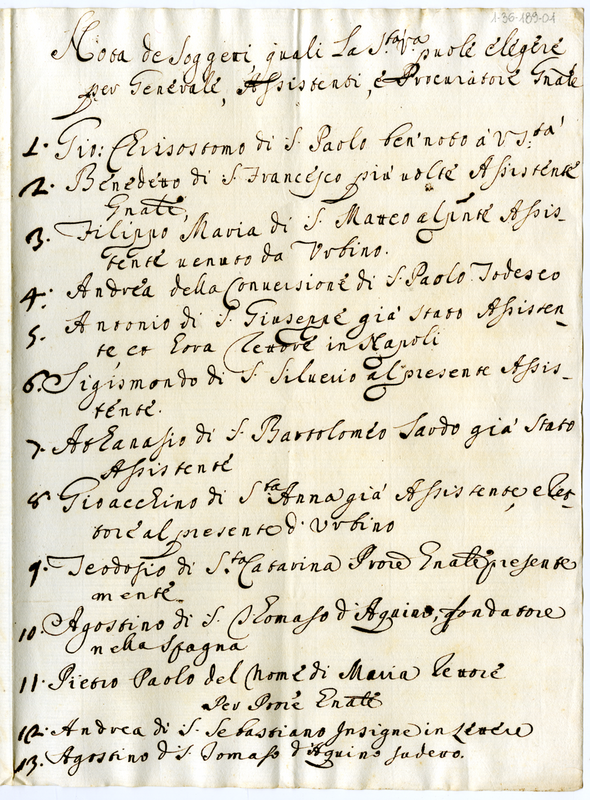 1-36-189-01
Nota de Soggeti, quali La S.tà V.a puole elegere
per Generale, Assistenti, e Procuratore Gnãle
1. Gio: Chrisostomo di S. Paolo ben noto à V.S.tà
2. Benedetto di S. Francesco più volte Assistente
Gnãle,
3. Filippo Maria di S. Matteo al pnte Assis-
tente venuto da Urbino.
4. Andrea della Conversione di S. Paolo Todesco
5. Antonio di S. Giuseppe già stato Assisten-
te, et hora Rettore in Napoli
6. Sigismondo di S. Silverio al presente Assis-
tente.
7. Athanasio di S. Bartolomeo Sardo già stato
Assistente
8. Gioacchino di S.ta Anna già Assistente, e Ret-
tore al presente d'Urbino
9. Teodosio di S.ta Catarina Prore Gnãle presente
mente
10. Agostino di S. Thomaso d'Aquino, fondatore
nella Spagna
11. Pietro Paolo del Nome di Maria Rettore
Per Prore Gnãle
12. Andrea di S. Sebastiano Insigne in Lettere
13. Agostino d S. Tomaso d'Aquino sudetto.